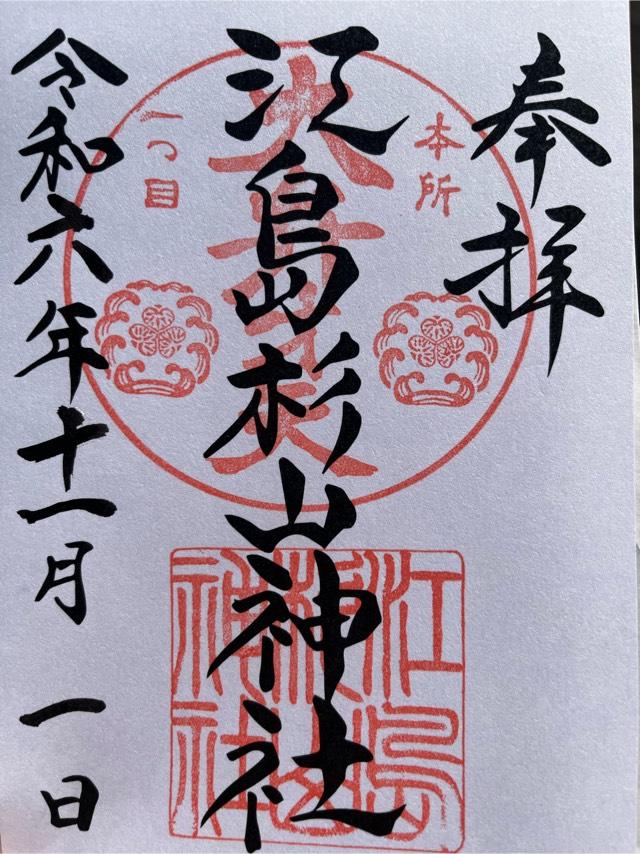 奉拝
本所
一つ目
大弁才天
江島杉山神社
江島
杉山
神社
令和六年十一月一日